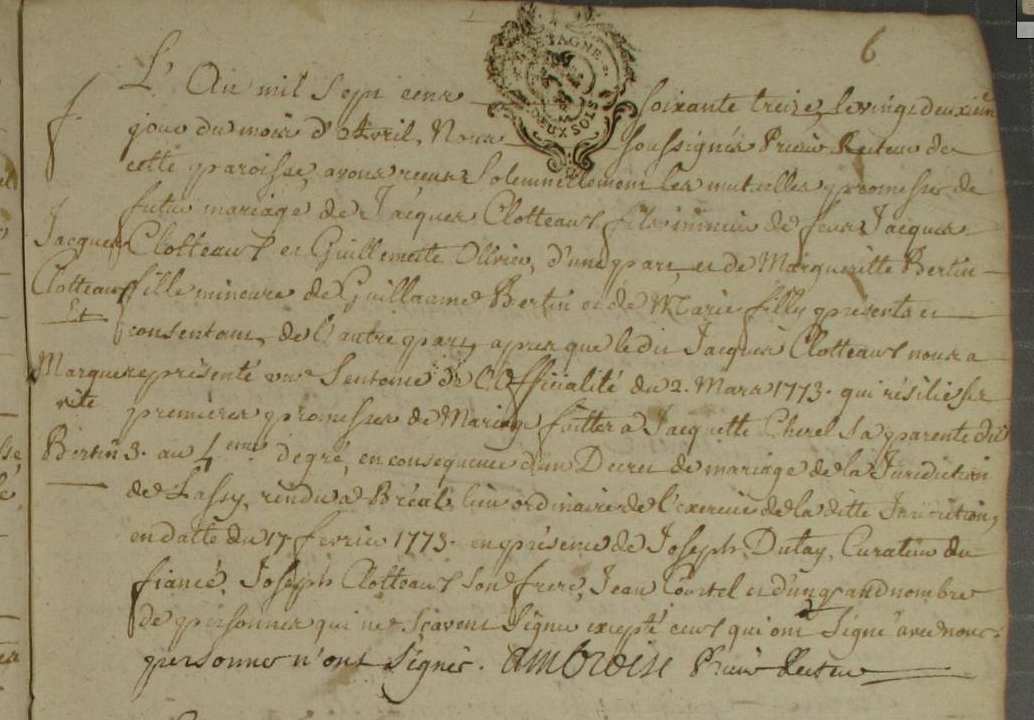 6
BRETAGNE
DEUX SOLS
f.
L'An mil Sept cent soixante treize, le vingt deuxiem
jour du mois d'Avril, Nous soussignés Prieur Recteur de
cette paroisse, avons recus Solemnellement les mutuelles promesses de
futur mariage de Jacques Clotteaux fils mineur de feus Jacques
Clotteaux et Guillemette Olivier, d'une part, et de Margueritte Bertin
fille mineure de Guillaume Bertin et de Marie filly présents et
consentans, de l'autre part, apres que le dit Jacques Clotteaux nous a
représenté une Sentence de l'Officialité du 2. Mars 1773. qui résilie ses
premieres promesses de Mariage faittes a Jacquette Cherel sa parente du
3. au 4eme degré, en consequence d'un Decret de mariage de la Juridiction
de Lassy, rendu a Bréal lieu ordinaire de l'exercice de la ditte Juridiction,
en datte du 17. fevrier 1773. en présence de Joseph Dutay, Curateur du
fiancé, Joseph Clotteaux son frere, Jean Courtel et d'un grand nombre
de personnes qui ne sçavent Signer excepté ceux qui ont Signé avec nous.
personnes n'ont Signés. Ambroise Prieur Recteur
Jacques
Clotteaux
Et
Margue
rite
Bertin